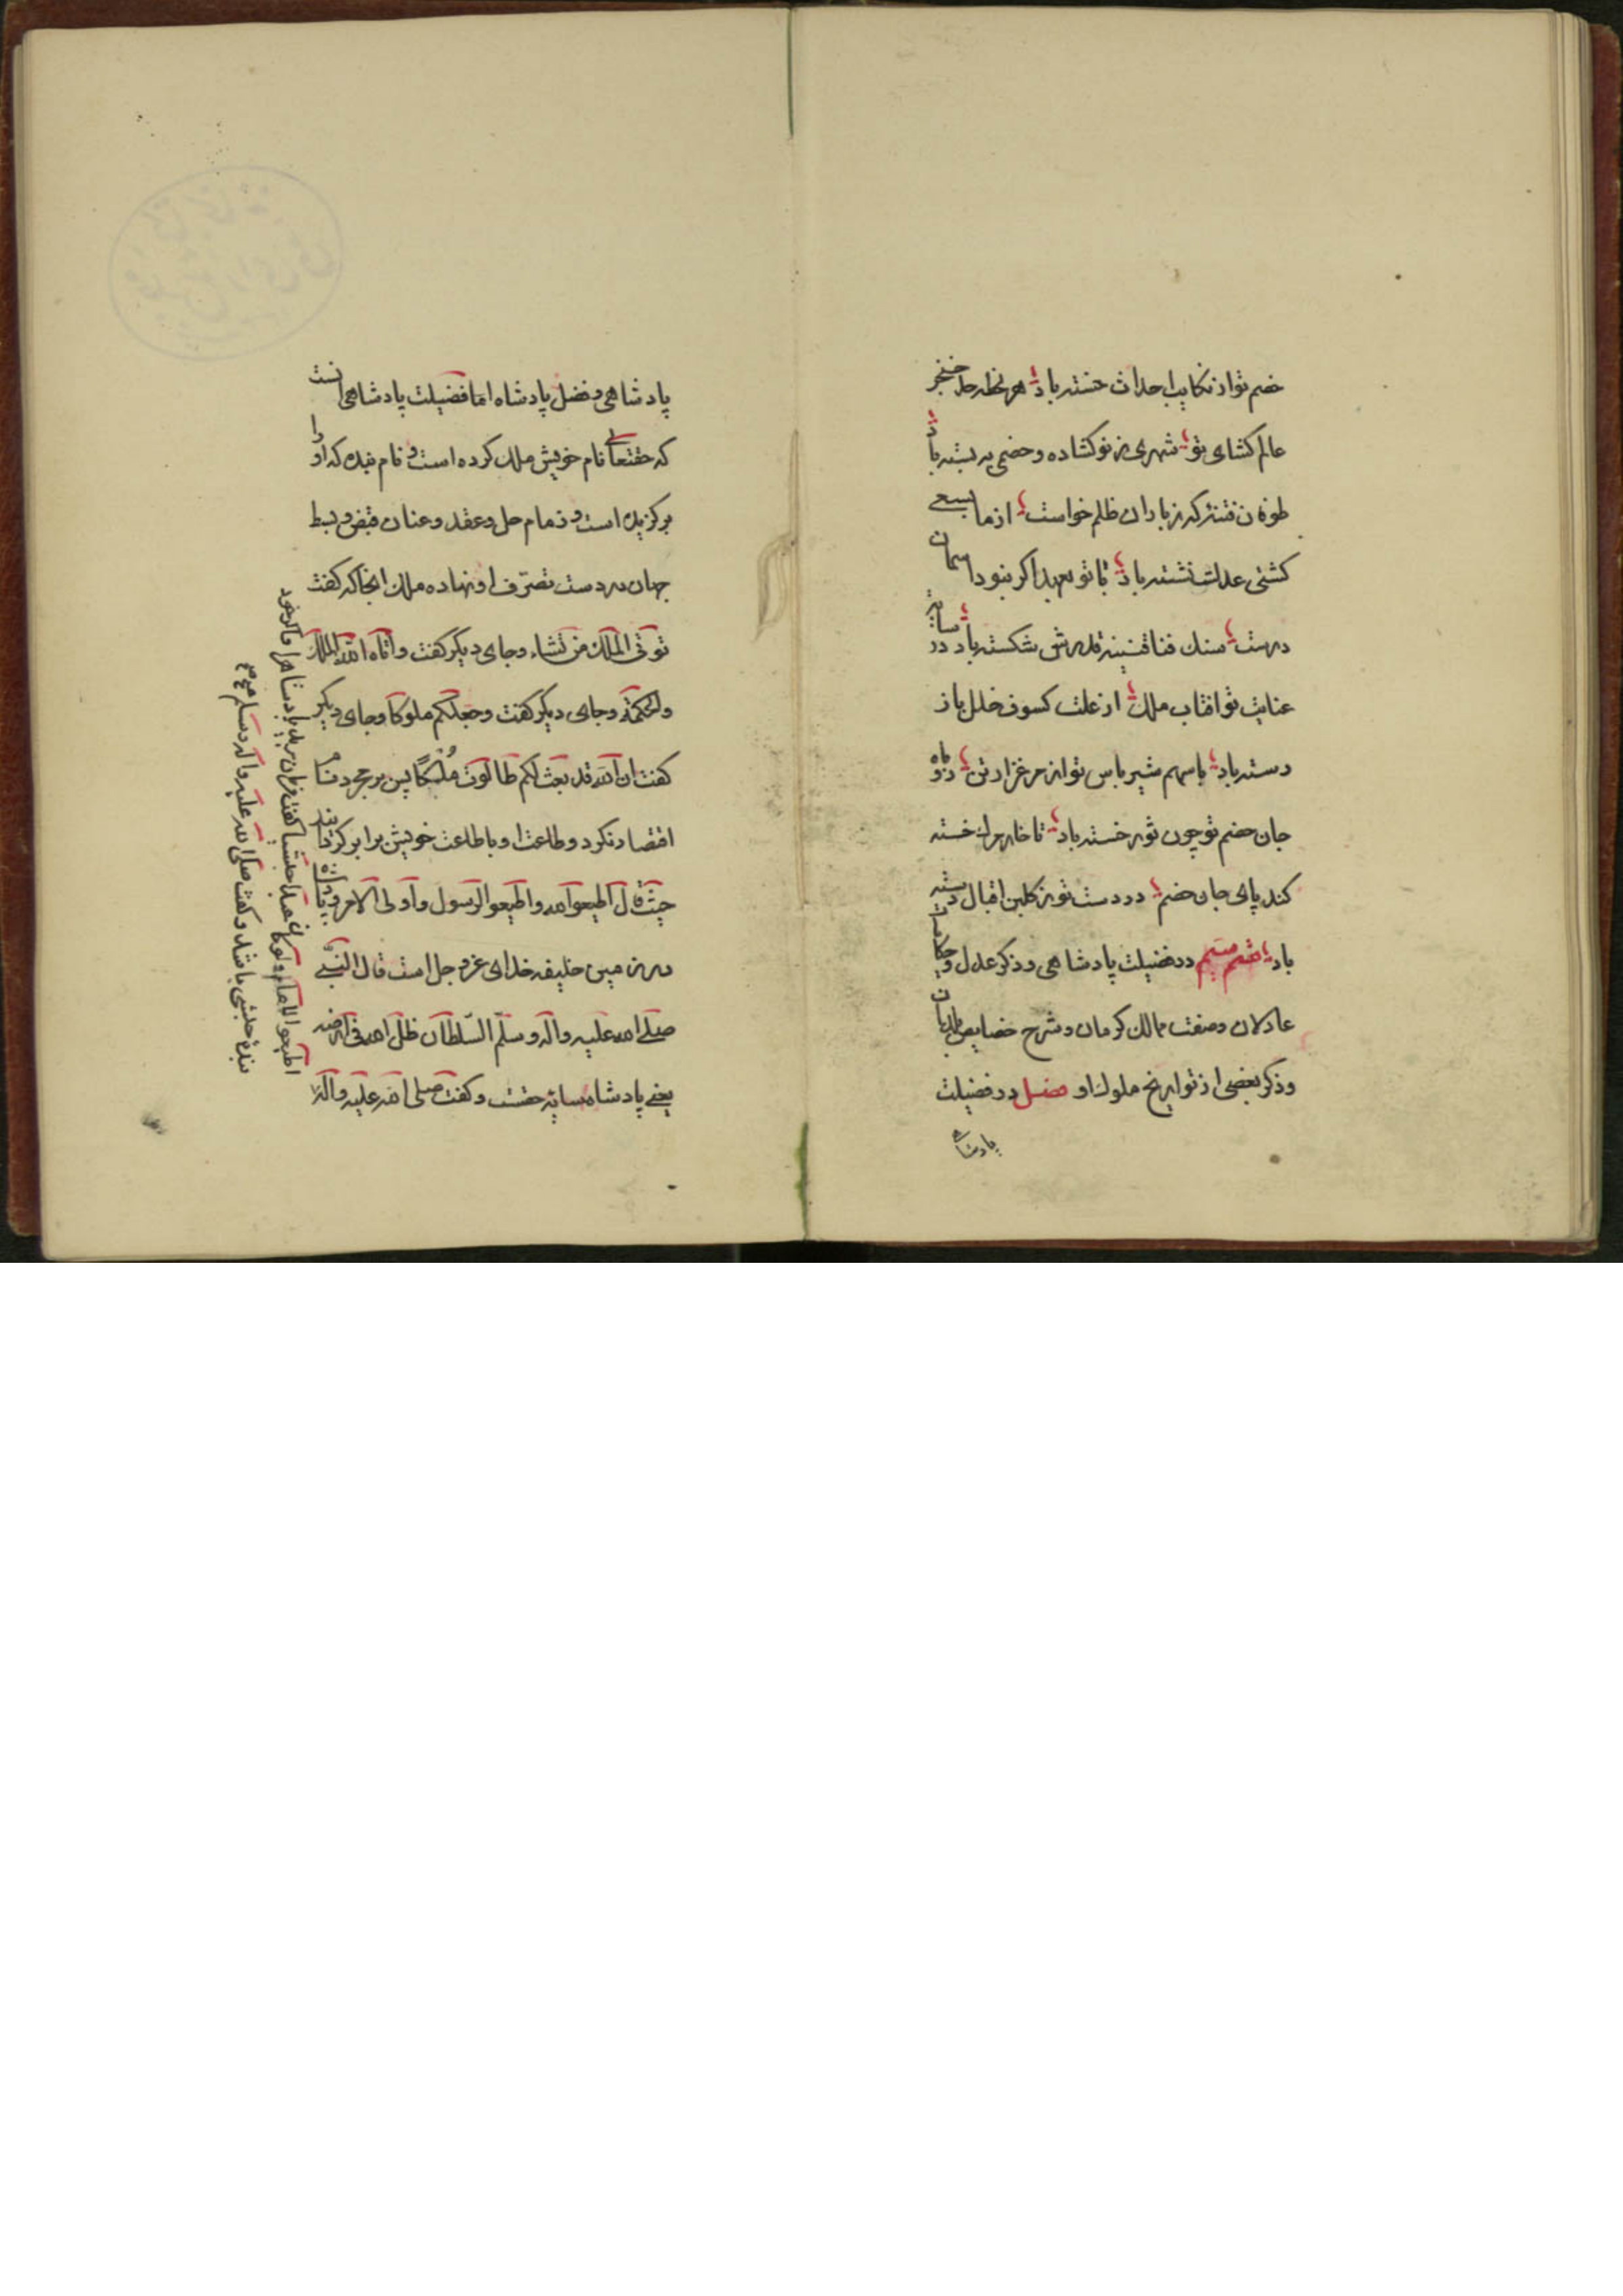 خصم تو از نکایب احداث خسته باد هر لحظه حد خنجر
عالم کشای تو شهری ز نو کشاده و خصمی به بسته باد
طوفان فتنه که ز باران ظلم خواست از ما بسعی
کشتی عدلت نشسته باد با تو بعهد اکر نبود اسمان
درست سنک فنا قنینه قدرش شکسته باد در سایه
عنایت تو افتاب ملک از علت کسوف خلل باز
دسته باد با سهم شیر باس تو از مرغزار تن روباه
جان خصم تو چون توره خسته باد تا خار مرک خسته
کند پای جان خصم در دست تو ز کلبن اقبال دسته
باد قسم سیم در فضیلت پادشاهی و ذکر عدل و حکایت
عادلان و صفت ممالک کرمان و شرح خصایص بلدان
و ذکر بعضی از تواریخ ملوک او فصل در فضیلت
پادشاهی
پادشاهی و فضل پادشاه اما فضیلت پادشاهی انست
که حقتعالی نام خویش ملک کرده است و نام بنده که او را
برکزیده است و زمام حل و عقد و عنان قبض و بسط
جهان در دست تصرّف او نهاده ملک انجا که کفت
توتی الملک من تشاء و جای دیکر کفت و اتاه الله الملک
والحکمة و جای دیکر کفت و جعلکم ملوکا و جای دیکر
کفت ان الله قد بعث لکم طالوت مُلکًا پس بر مجرد نام
اقتصار نکرد و طاعت او با طاعت خویش برابر کردانید
حیث قال اطیعوا الله واطیعوا الرسول واولی الامر و پادشاه
در زمین خلیفه خدای عز و جل است قال النبی
صلی الله علیه واله وسلّم السّلطان ظل الله فی ارضه
یعنی پادشاه سایه حقست و کفت صلی الله علیه واله
اطیعوا الامام ولو کان عبدا حبشیا کفت فرمان برید پادشاه را اکر خود
بنده حبشی باشد و کفت صلی الله علیه واله وسلم